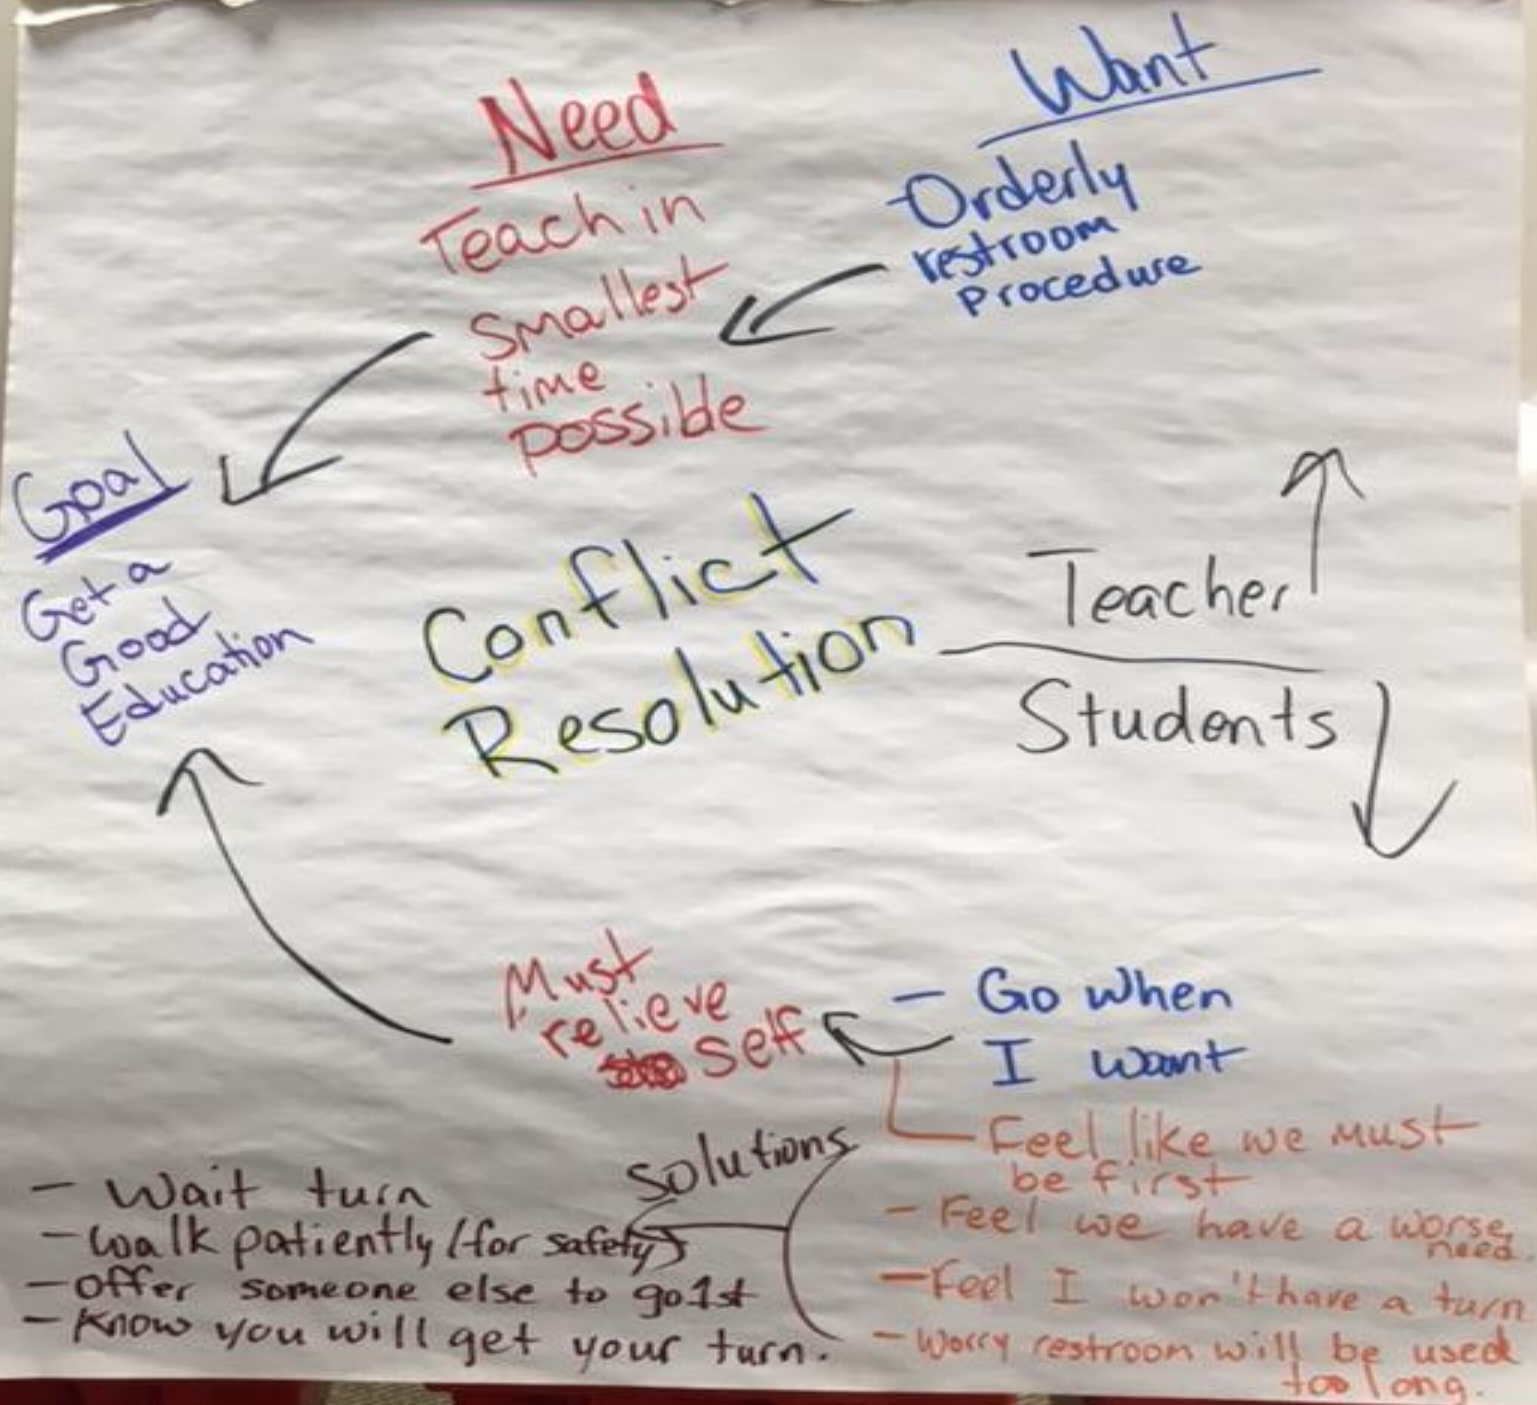 Want
- Orderly
restroom
procedure
Need
Teach in
smallest
time
possible
Goal
Get a
Good
Education
Conflict
Resolution
Teacher
Students
Must
relieve
self
- Go when
I want
- Feel like we must
be first
- Feel we have a worse
need.
- Feel I won't have a turn
- Worry restroom will be used
too long.
Solutions
- Wait turn
- walk patiently (for safety)
- offer someone else to go 1st
- Know you will get your turn.